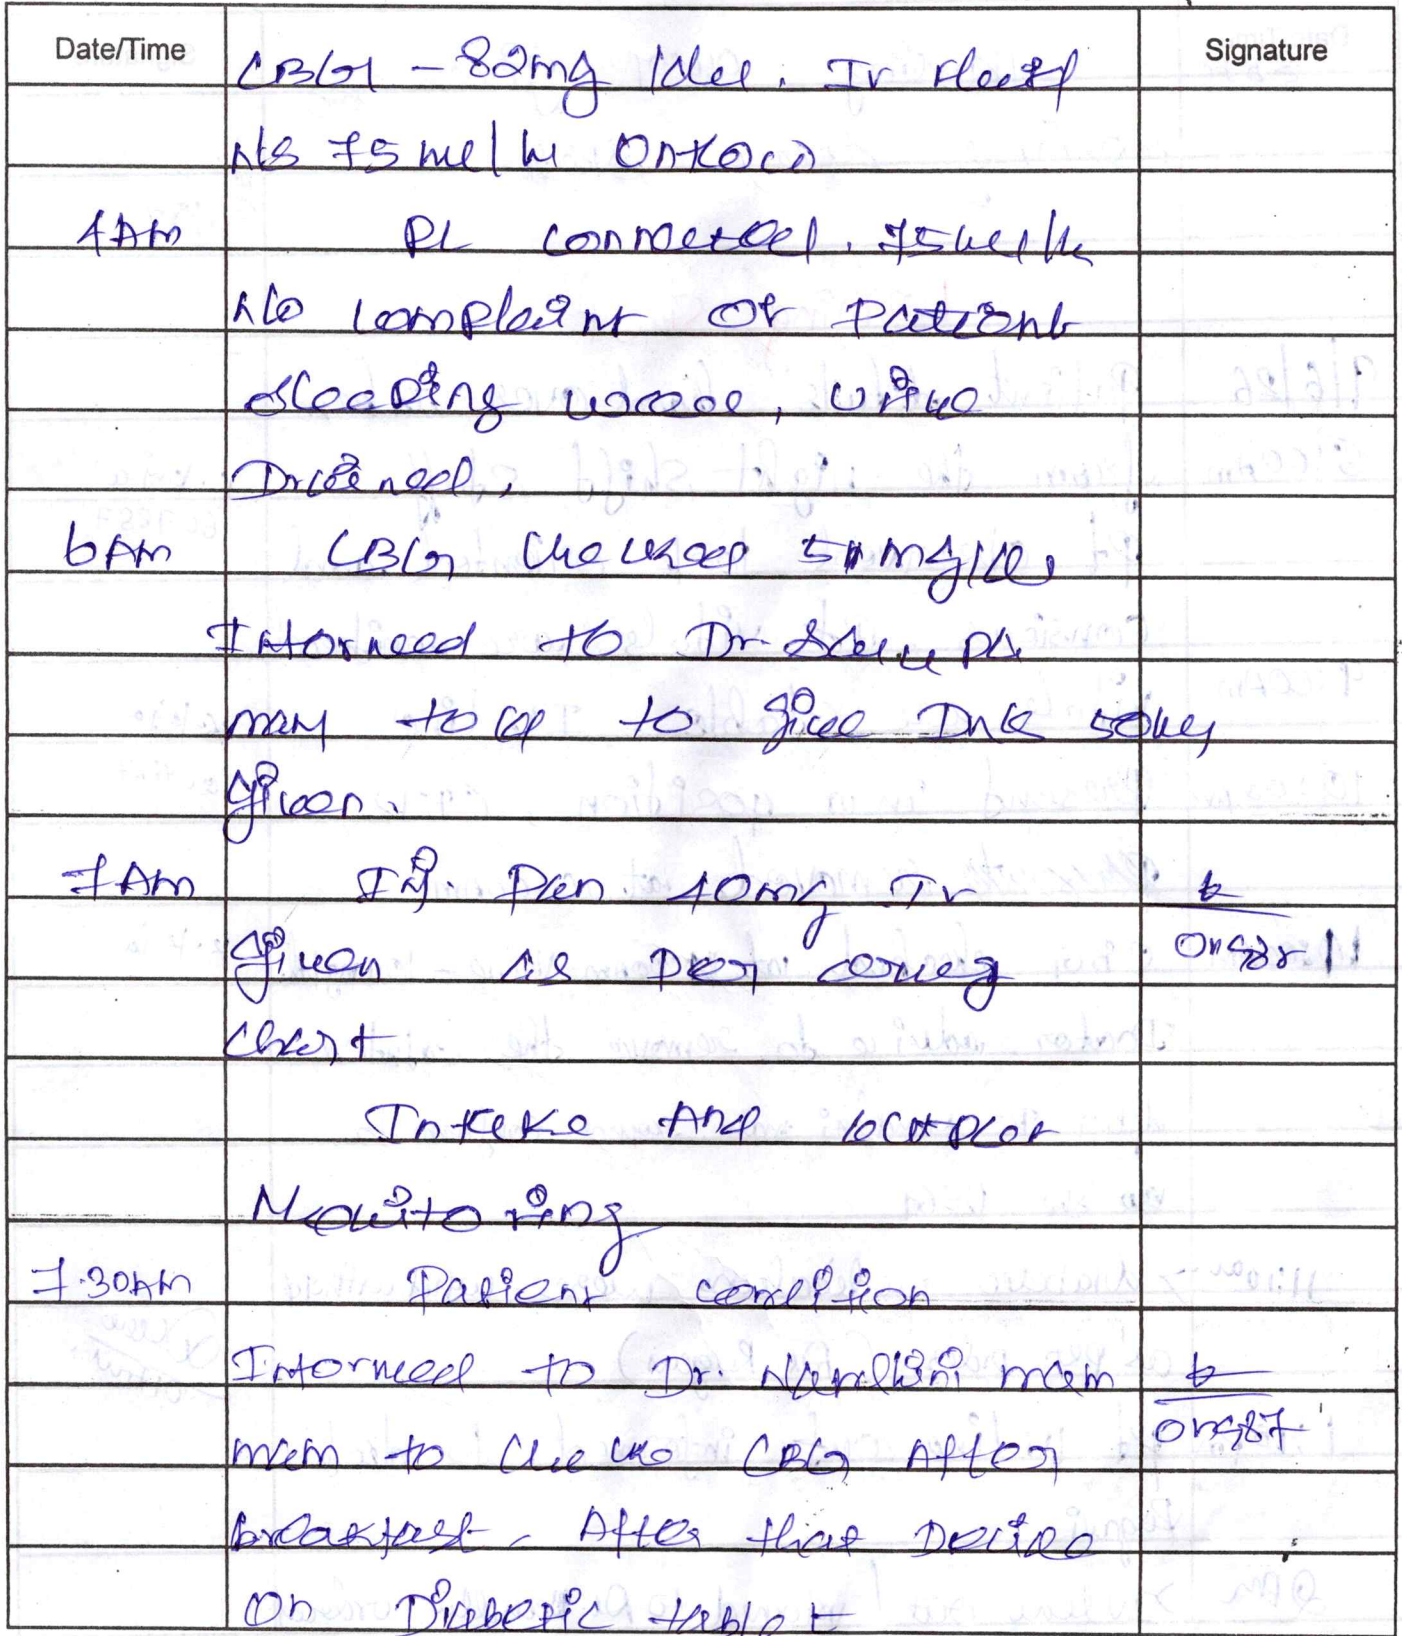 Date/Time Signature
CBG - 82mg/dl. IV fluid
NS 75 ml/hr on flow
4AM RL connected. 75ml/hr
No complaint of Patient
sleeping well, urine
Drained,
6AM CBG checked mg/dl,
Informed to Dr.
mam told to give DNS 50ml,
given.
7AM Inj. Pan 40mg IV
given as per drug
chart
Intake And output
Monitoring
7.30AM Patient condition
Informed to Dr. Nandhini mam
mam to check CBG After
breakfast. After that Decide
On Diabetic tablet